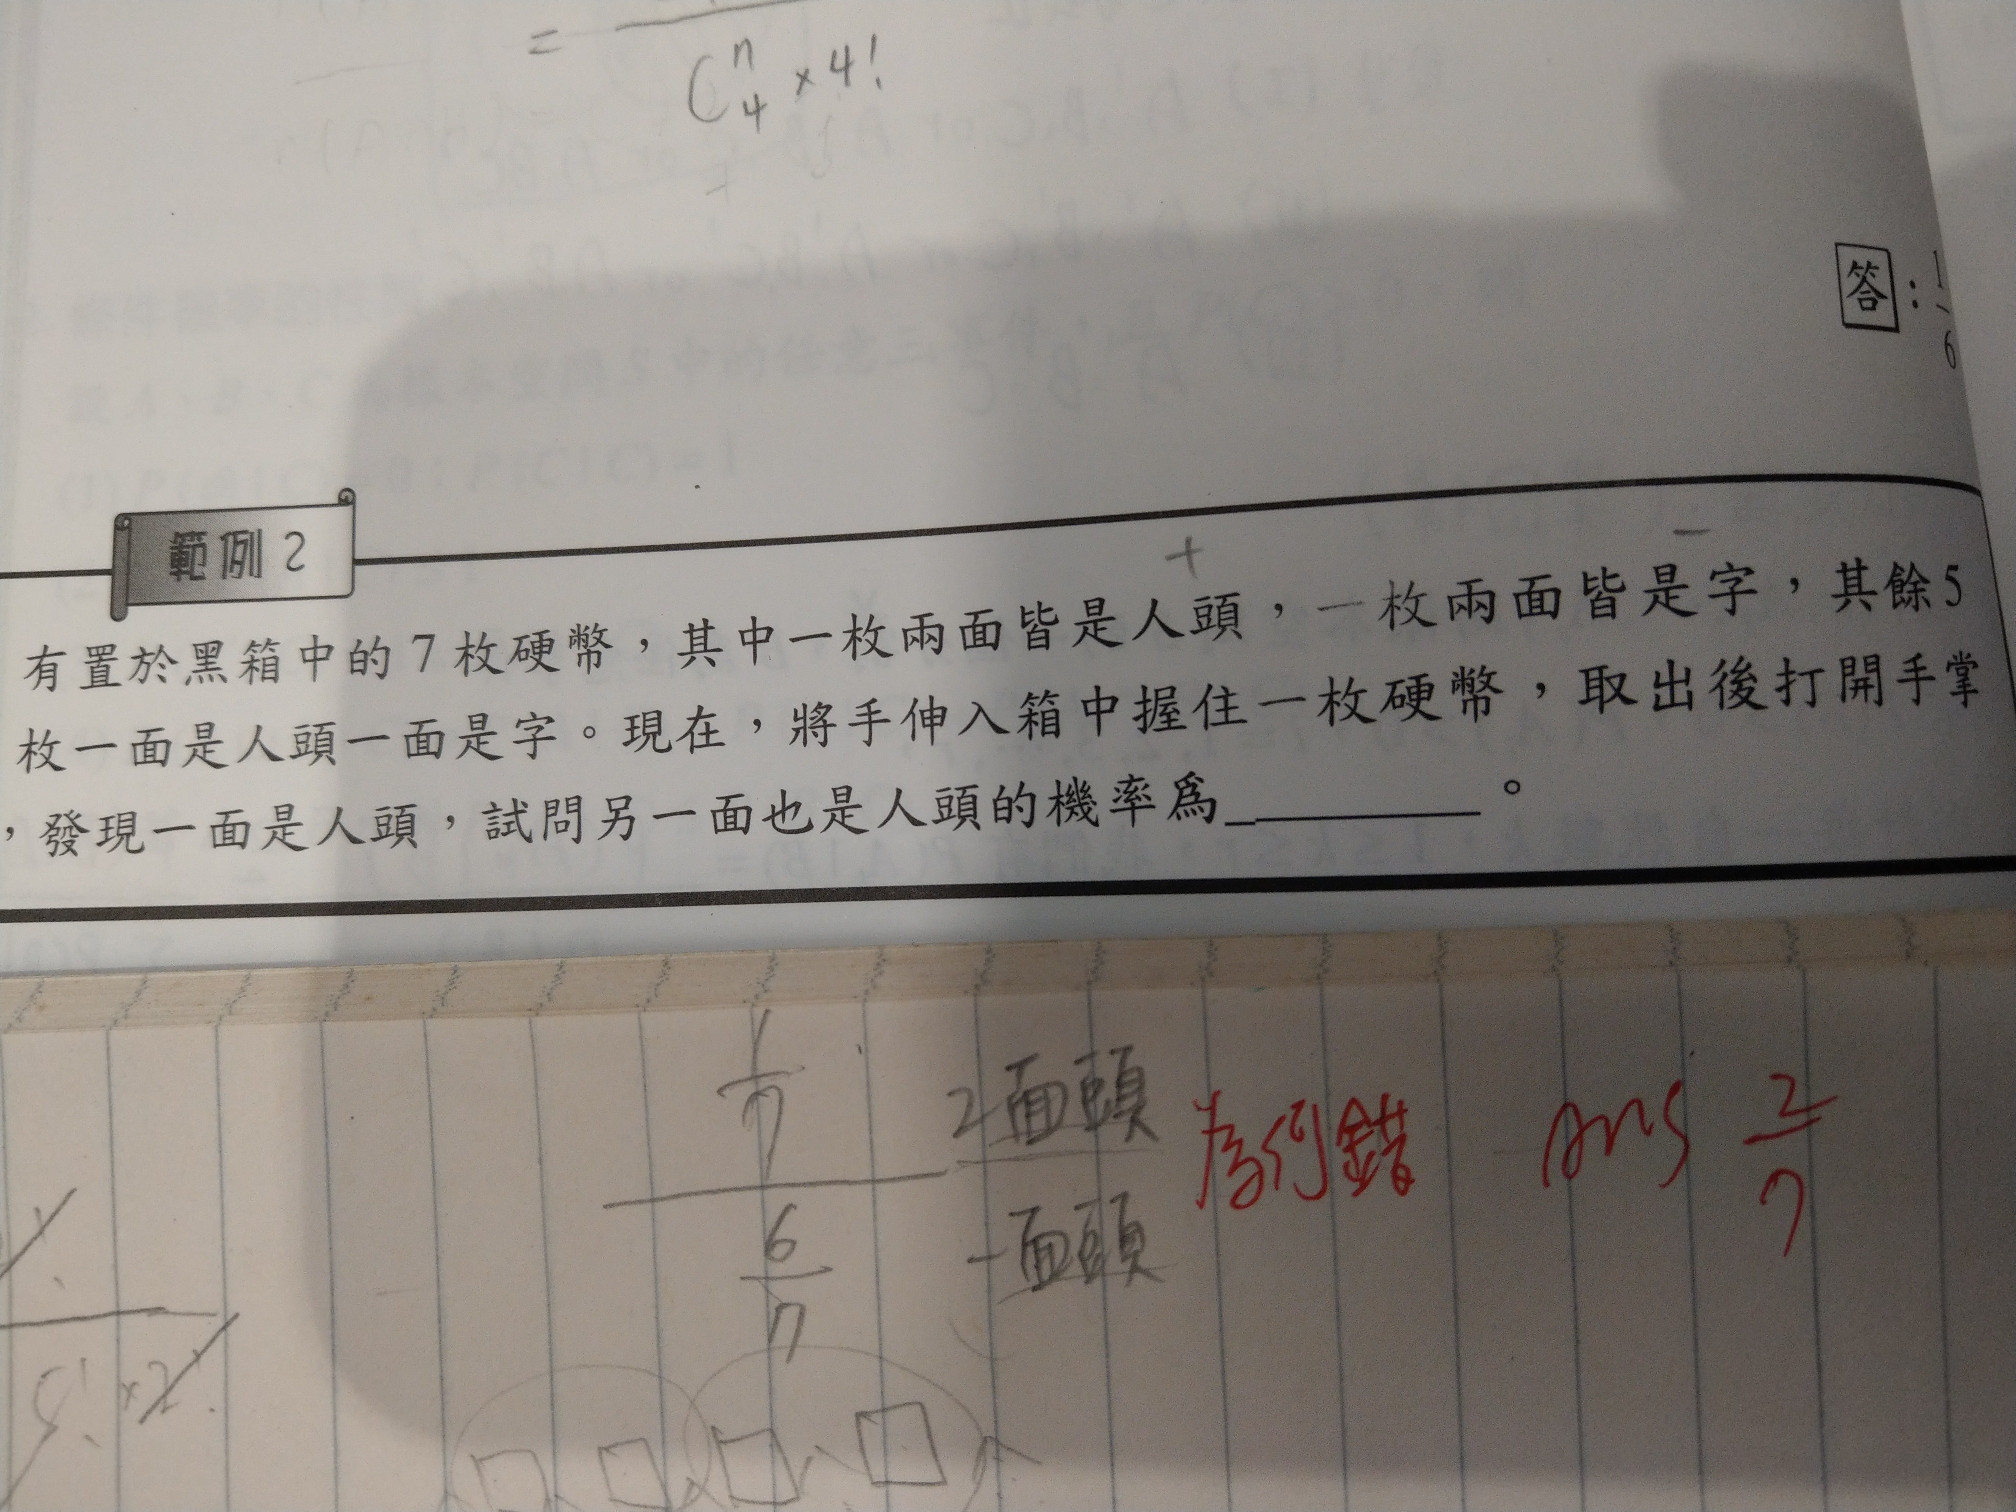 =
C n 4 × 4!
答 : 1/6
範例 2
有置於黑箱中的 7 枚硬幣，其中一枚兩面皆是人頭，一枚兩面皆是字，其餘 5
+ −
枚一面是人頭一面是字。現在，將手伸入箱中握住一枚硬幣，取出後打開手掌
，發現一面是人頭，試問另一面也是人頭的機率為＿＿＿＿。
1/7 2面頭
6/7 一面頭
為何錯 ans 2/7